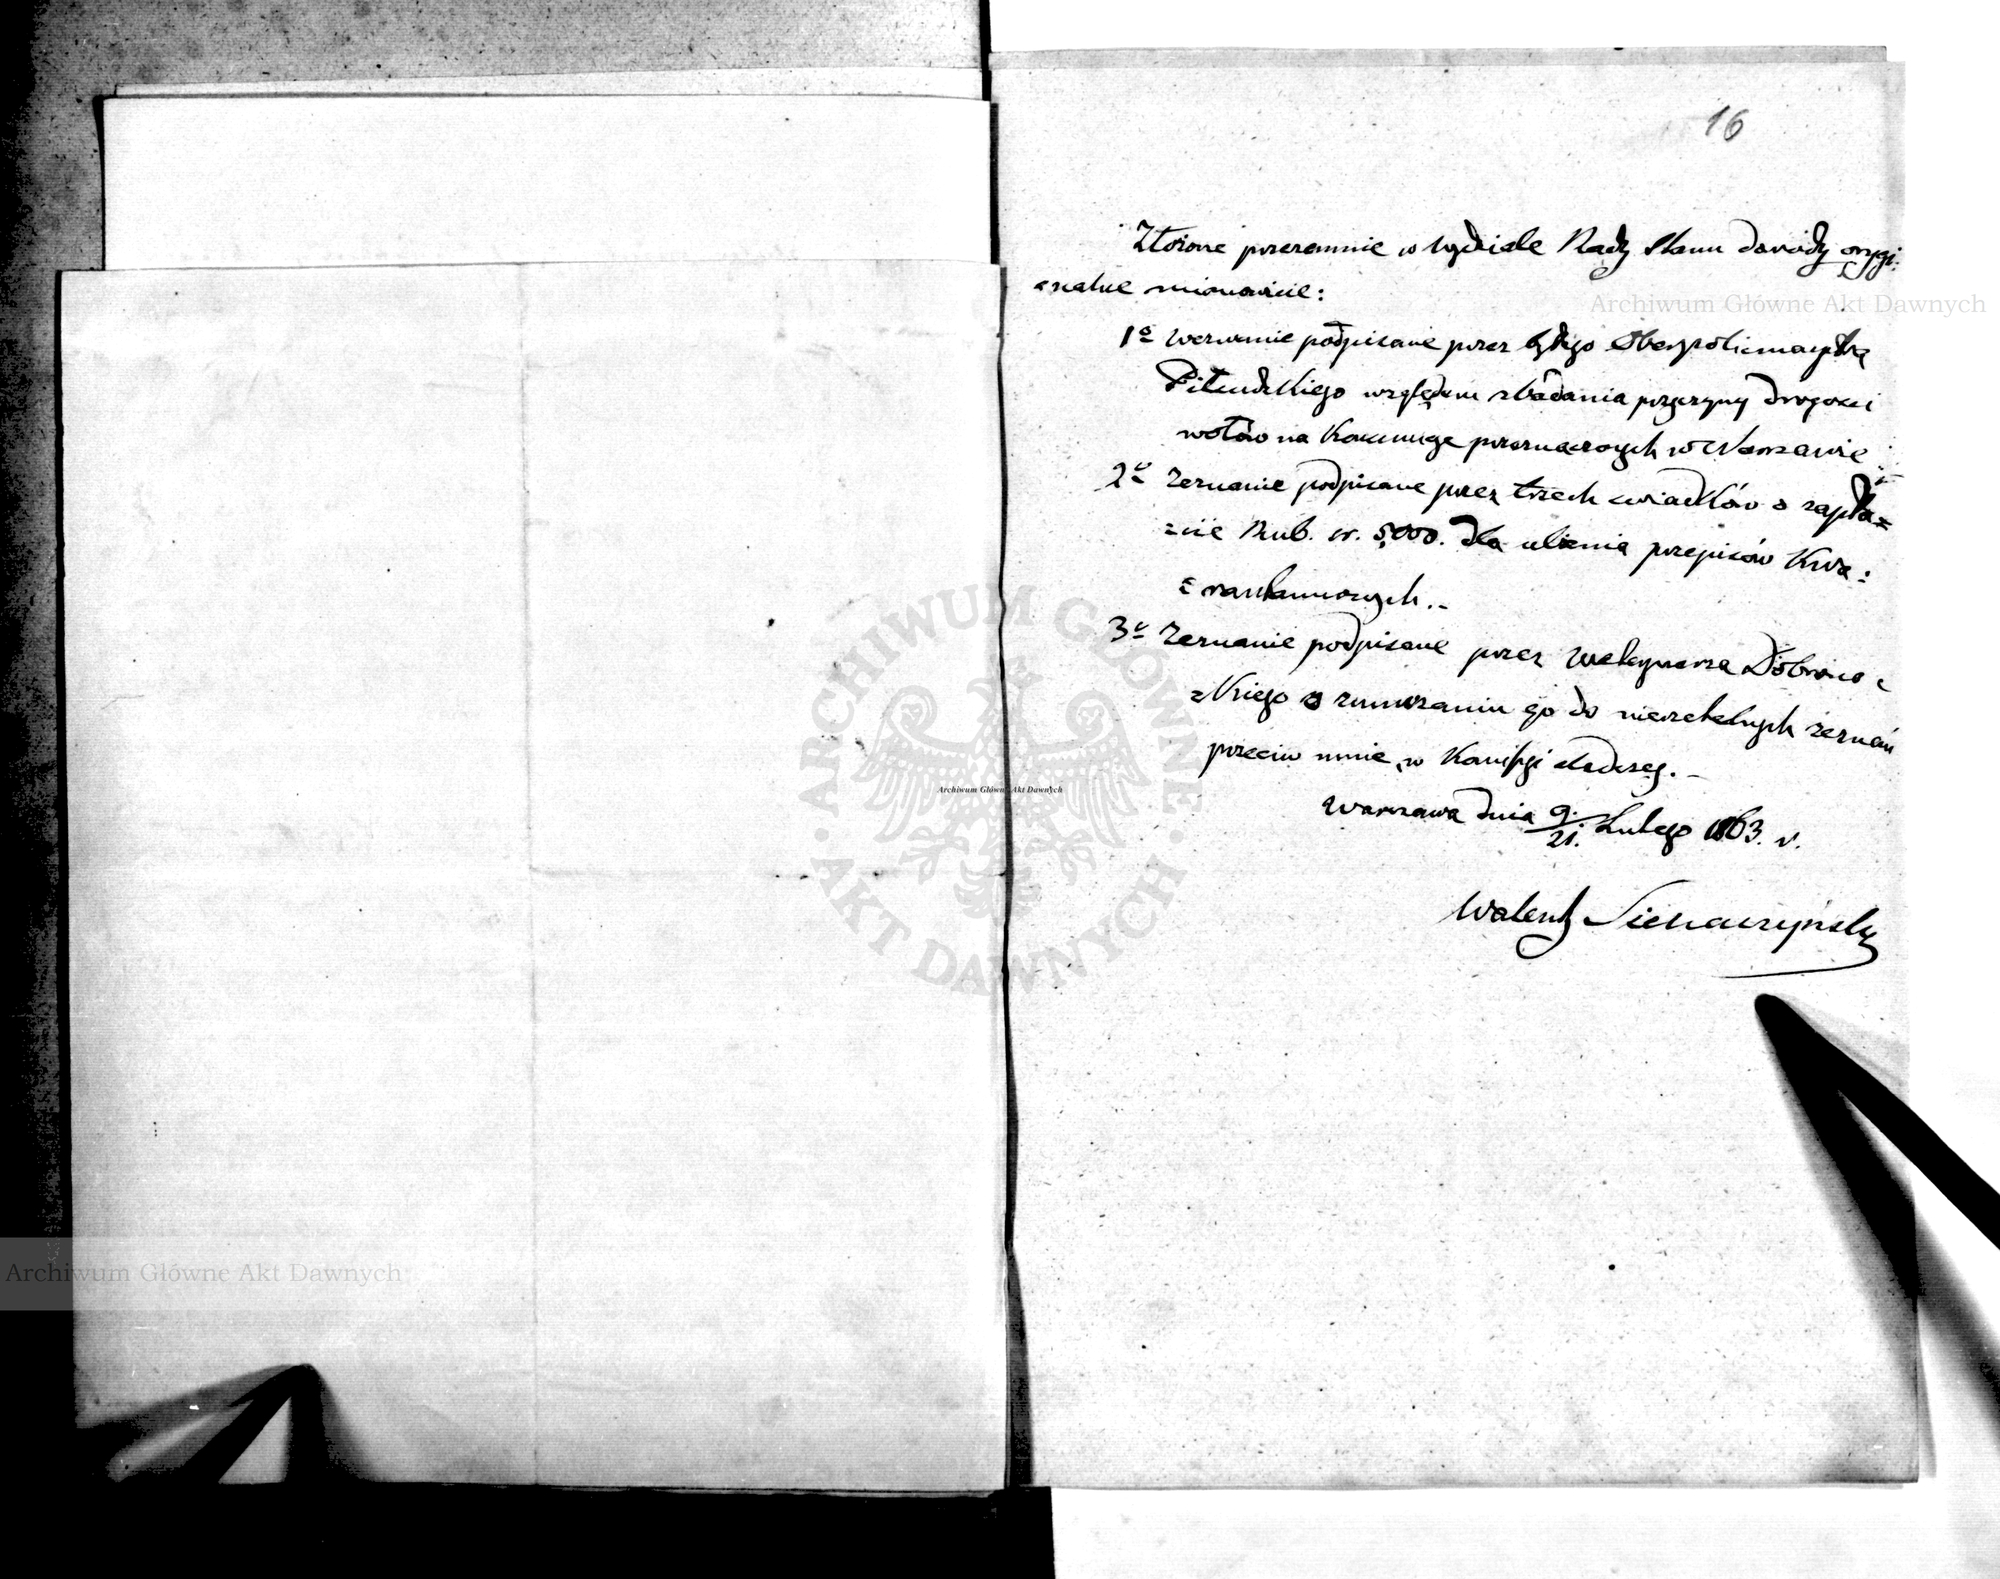 16
Złożone przezemnie w Wydziale Rady Stanu dowody orygi:
nalne mianowicie:
1º Wezwanie podpisane przez byłego Oberpolicmajstra
Piłsudzkiego względem zbadania przyczyny drogości
wołów na konsumpcję przeznaczonych w Warszawie
2º Zeznanie podpisane przez trzech świadków o zapła=
=cie Rub. sr. 5,000. dla przepisów Kwa:
=rantannowych..
3º Zeznanie podpisane przez Weterynarza
=skiego o zmuszaniu go do nierzetelnych zeznań
przeciw mnie, w Komissyi Śledczej. –
Warszawa dnia 9./21. Lutego 1863. r.
Walenty
Archiwum Główne Akt Dawnych
ARCHIWUM GŁÓWNE · AKT DAWNYCH ·
Archiwum Główne Akt Dawnych
Archiwum Główne Akt Dawnych